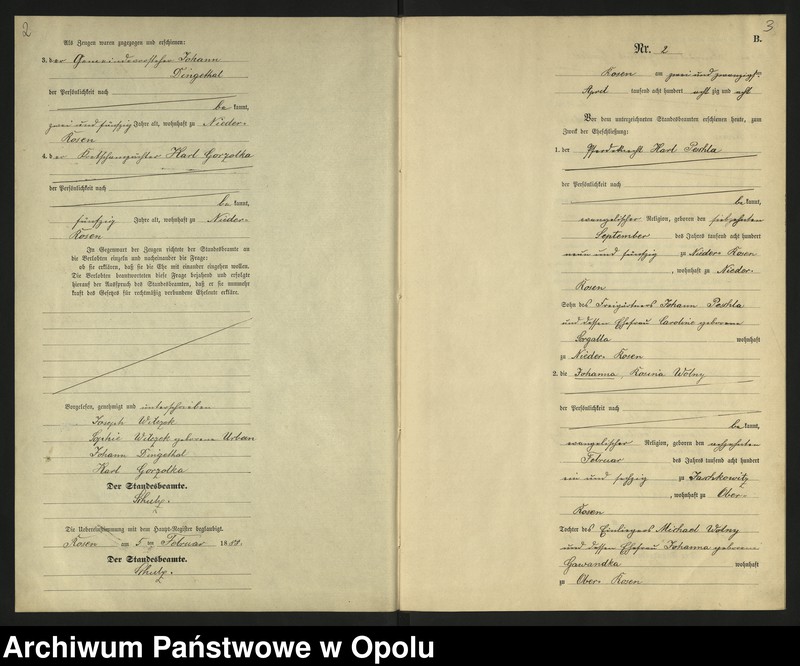 2
Als Zeugen waren zugezogen und erschienen:
3. der Gemeindevorsteher Johann
Dingethal
der Persönlichkeit nach
bekannt,
zwei und fünfzig Jahre alt, wohnhaft zu Nieder-
Rosen
4. der Kretschampächter Karl Gorzolka
der Persönlichkeit nach
bekannt,
fünfzig Jahre alt, wohnhaft zu Nieder-
Rosen
In Gegenwart der Zeugen richtete der Standesbeamte an
die Verlobten einzeln und nacheinander die Frage:
ob sie erklären, daß sie die Ehe mit einander eingehen wollen.
Die Verlobten beantworteten diese Frage bejahend und erfolgte
hierauf der Ausspruch des Standesbeamten, daß er sie nunmehr
kraft des Gesetzes für rechtmäßig verbundene Eheleute erkläre.
Vorgelesen, genehmigt und unterschrieben
Joseph Witczek
Sophie Witczek geborene Urban
Johann Dingethal
Karl Gorzolka
Der Standesbeamte.
Schulz.
Die Uebereinstimmung mit dem Haupt-Register beglaubigt.
Rosen am 5 ten Februar 1888.
Der Standesbeamte.
Schulz.
3
B.
Nr. 2
Rosen am zwei und zwanzigsten
April tausend acht hundert acht zig und acht
Vor dem unterzeichneten Standesbeamten erschienen heute, zum
Zweck der Eheschließung:
1. der Pferdeknecht Karl Poshla
der Persönlichkeit nach
bekannt,
evangelischer Religion, geboren den siebzehnten
September des Jahres tausend acht hundert
neun und fünfzig zu Nieder-Rosen
, wohnhaft zu Nieder-
Rosen
Sohn des Freigärtners Johann Poshla
und dessen Ehefrau Caroline geborene
wohnhaft
zu Nieder-Rosen
2. die Johanna Rosina Wolny
der Persönlichkeit nach
bekannt,
evangelischer Religion, geboren den achtzehnten
Februar des Jahres tausend acht hundert
ein und sechzig zu Jaschkowitz
, wohnhaft zu Ober-
Rosen
Tochter des Einliegers Michael Wolny
und dessen Ehefrau Johanna geborene
Gawandka wohnhaft
zu Ober-Rosen
Archiwum Państwowe w Opolu